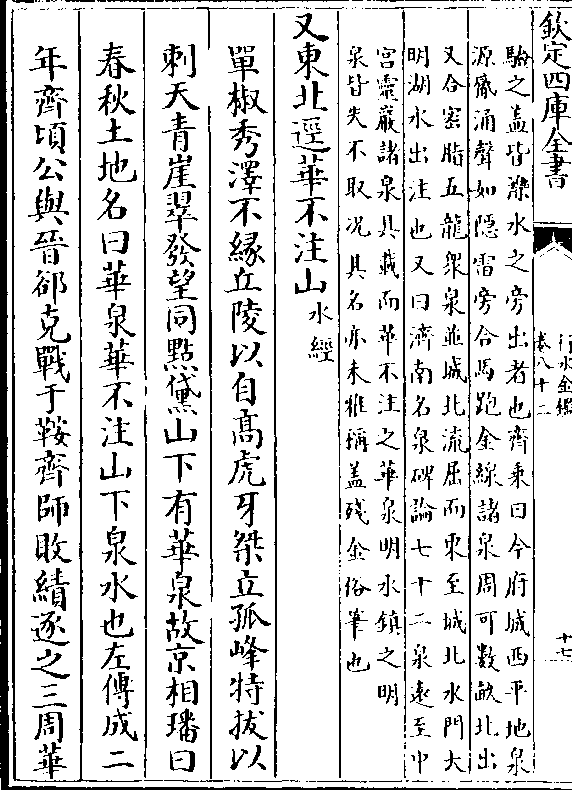 欽定四庫全書
行水金鑑
卷八十二
十七
驗之蓋皆濼水之旁出者也齊乗曰今府城西平地泉
源觱涌聲如隠雷旁合馬跑金線諸泉周可數畝北出
又合宻脂五龍衆泉並城北流屈而東至城北水門大
明湖水出注也又曰濟南名泉碑論七十二泉逺至中
宫靈巖諸泉具載而華不注之華泉明水鎮之明
泉皆失不取况其名亦未雅稱蓋殘金俗筆也
又東北逕華不注山水經
單椒秀澤不緣丘陵以自高虎牙桀立孤峰特拔以
刺天青崖翠發望同點黛山下有華泉故京相璠曰
春秋土地名曰華泉華不注山下泉水也左傳成二
年齊頃公與晉郤克戰于鞍齊師敗績逐之三周華